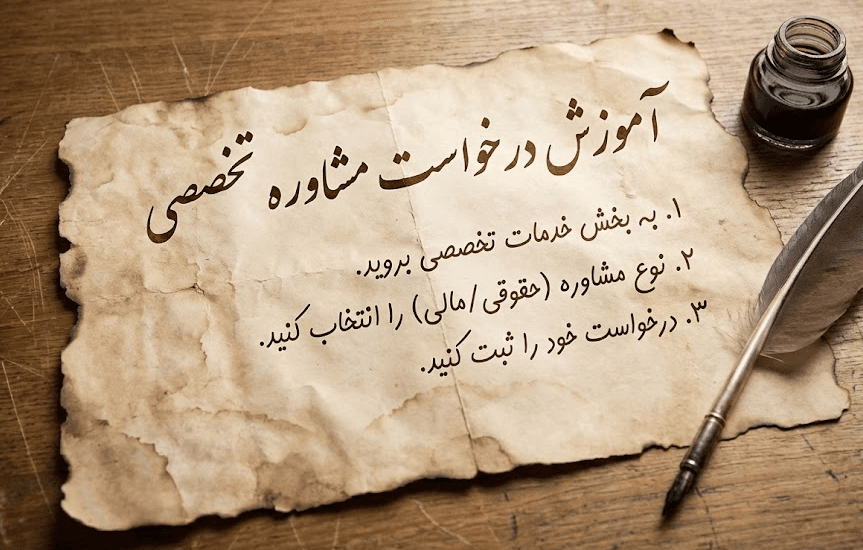 آموزش درخواست مشاوره تخصصی
۱. به بخش خدمات تخصصی بروید.
۲. نوع مشاوره (حقوقی/مالی) را انتخاب کنید.
۳. درخواست خود را ثبت کنید.